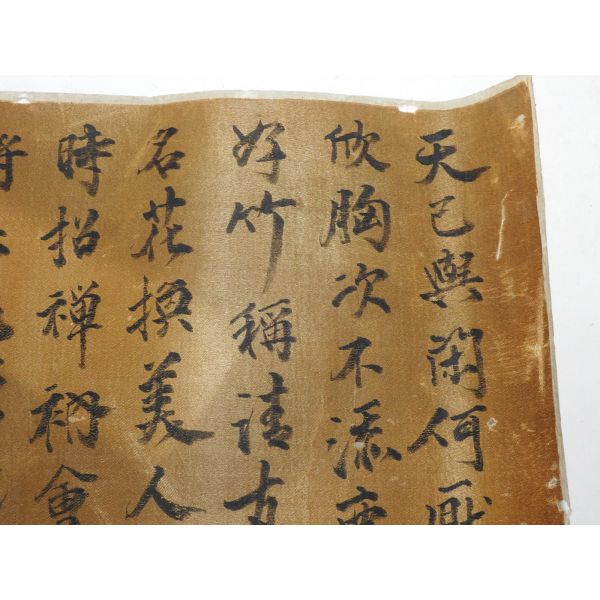 天已與閑何厭
欣胸次不添
好竹稱請
名花換美人
時招禪衲會